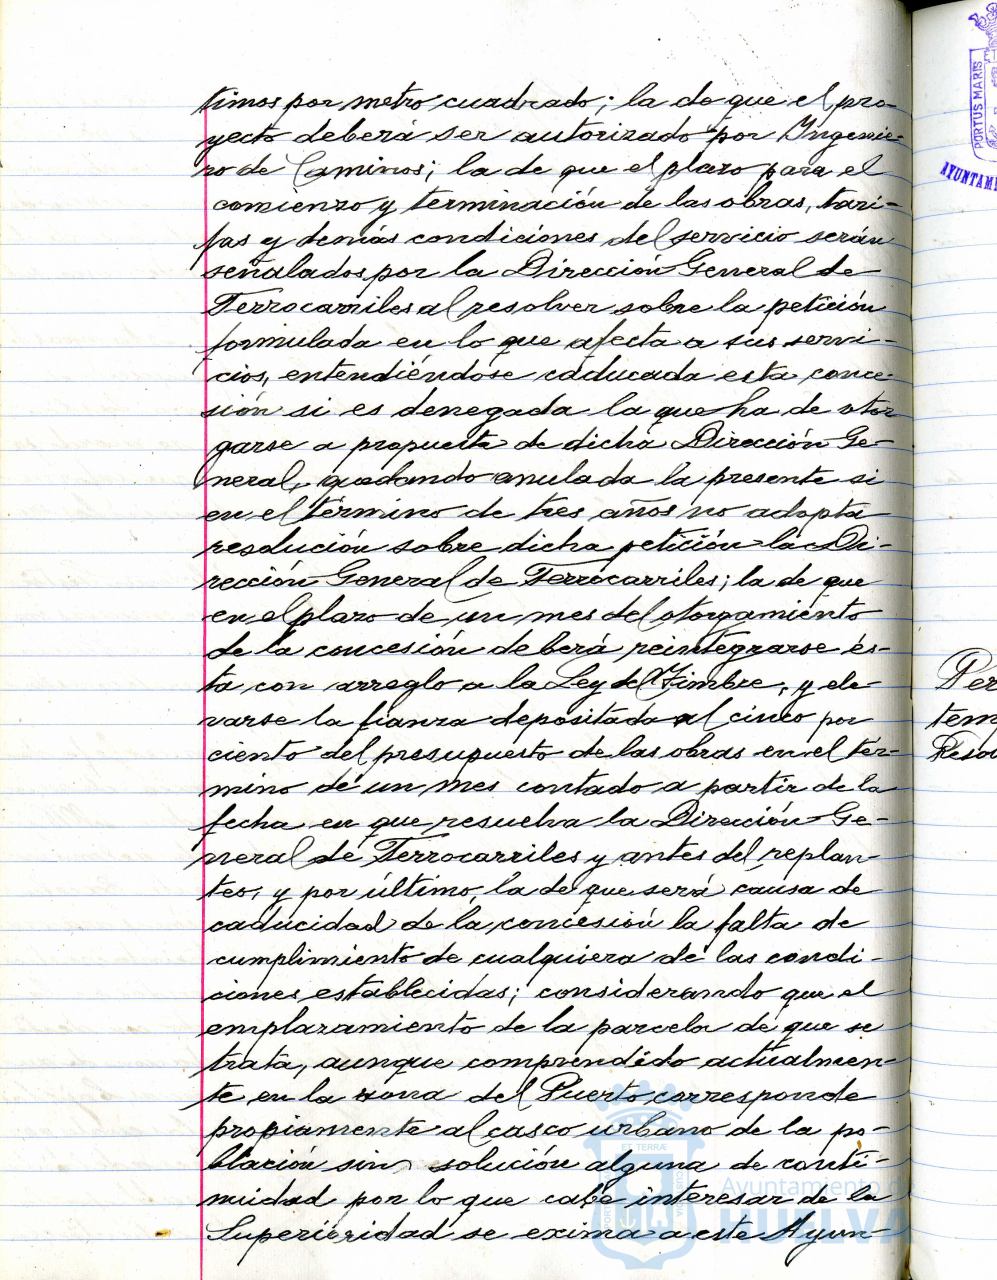 timos por metro cuadrado; la de que el pro-
yecto deberá ser autorizado por Ingenie-
ro de Caminos; la de que el plazo para el
comienzo y terminación de las obras, tari-
fas y demás condiciones del servicio serán
señalados por la Dirección General de
Ferrocarriles al resolver sobre la petición
formulada en lo que afecta a sus servi-
cios, entendiéndose caducada esta conce-
sión si es denegada la que ha de otor
garse a propuesta de dicha Dirección Ge-
neral, quedando anulada la presente si
en el término de tres años no adopta
resolución sobre dicha petición la Di-
rección General de Ferrocarriles; la de que
en el plazo de un mes del otorgamiento
de la concesión deberá reintegrarse és-
ta con arreglo a la Ley del Timbre, y ele-
varse la fianza depositada al cinco por
ciento del presupuesto de las obras en el tér-
mino de un mes contado a partir de la
fecha en que resuelva la Dirección Ge-
neral de Ferrocarriles y antes del replan-
teo; y por último, la de que será causa de
caducidad de la concesión la falta de
cumplimiento de cualquiera de las condi-
ciones establecidas; considerando que el
emplazamiento de la parcela de que se
trata, aunque comprendido actualmen-
te en la zona del Puerto corresponde
propiamente al casco urbano de la po-
blación sin solución alguna de conti-
nuidad por lo que cabe interesar de la
Superioridad se exima a este Ayun-
PORTUS MARIS
AYUNTAMI
Per
tem
Resol
Ayuntamiento de
HUELVA